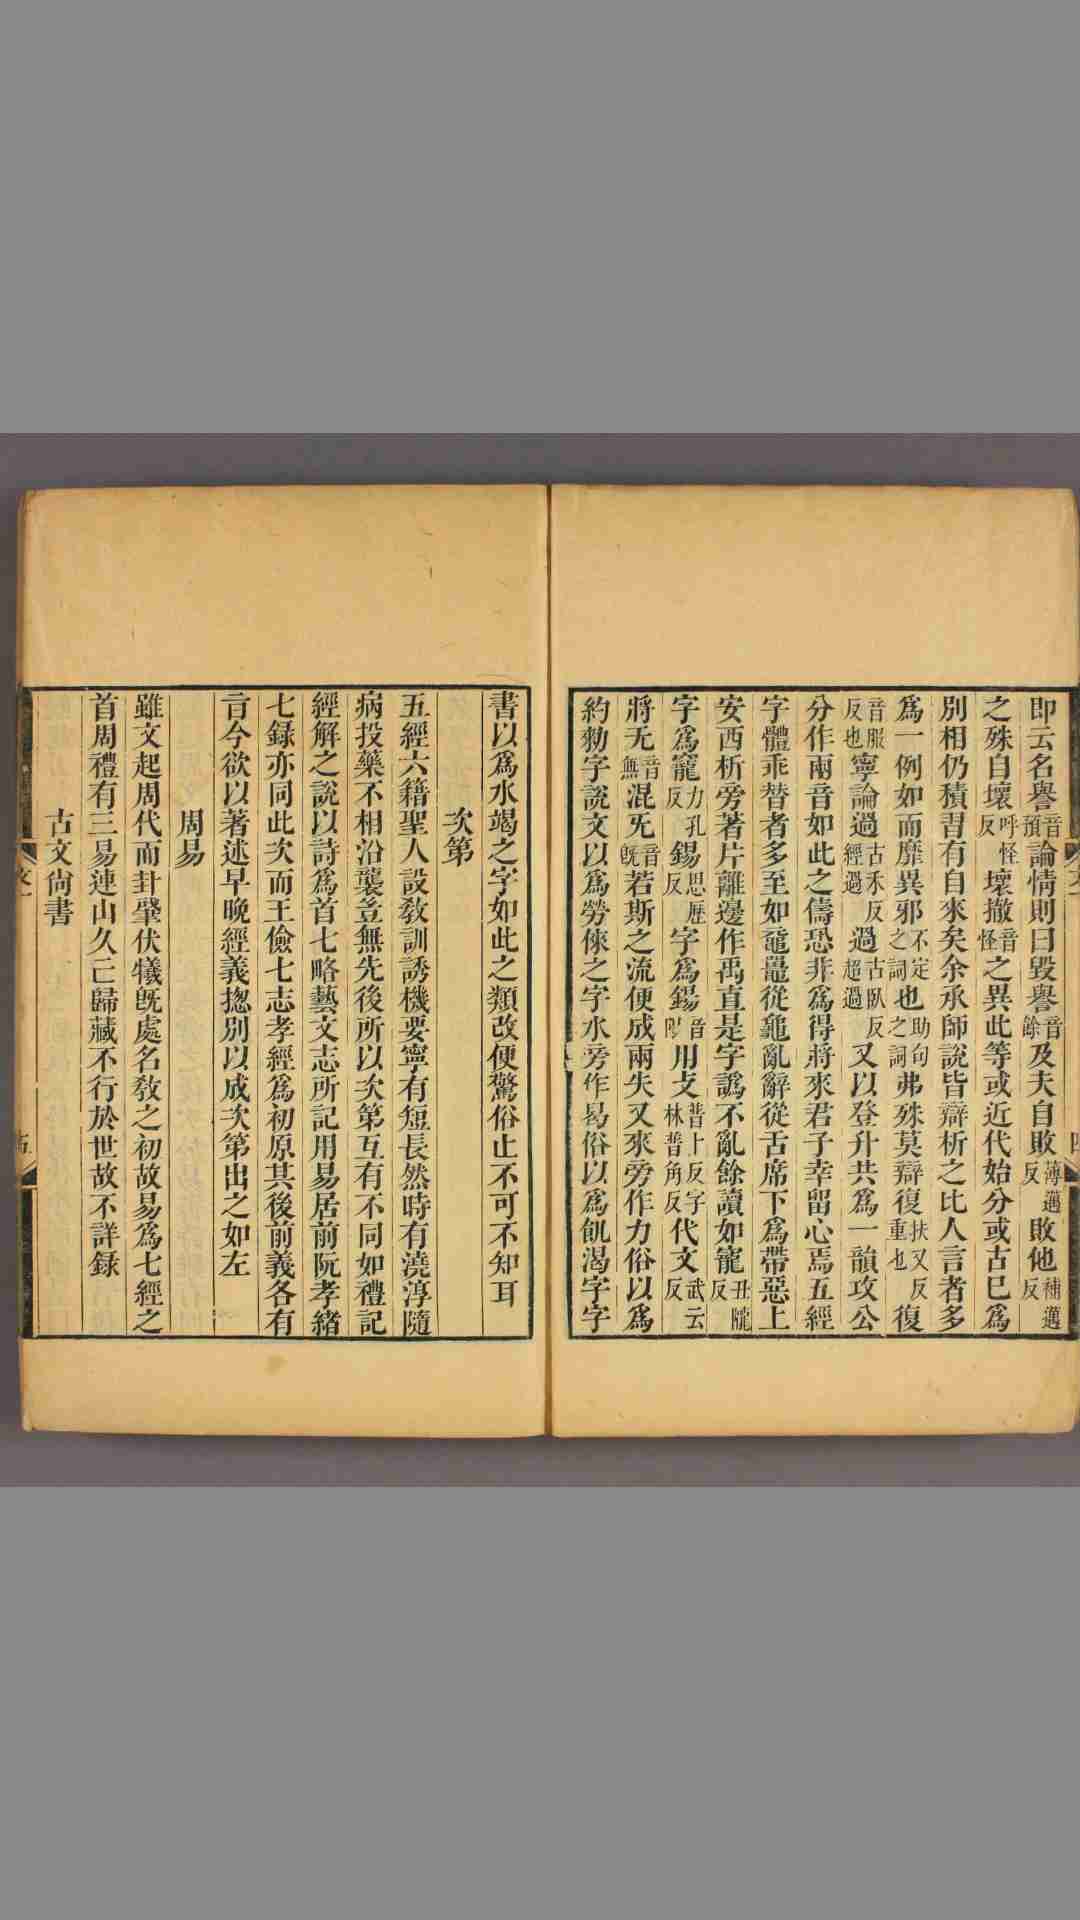 即云名譽音預論情則曰毀譽音餘及夫自敗薄邁反敗他補邁反
之殊自壞呼怪反壞撤音怪之異此等或近代始分或古巳爲
別相仍積習有自來矣余承師說皆辯析之比人言者多
爲一例如而靡異邪不定之詞也助句之詞弗殊莫辯復扶又反重也復
音服反也寧論過古禾反經過過古臥反超過又以登升共爲一韻攻公
分作兩音如此之儔恐非爲得將來君子幸留心焉五經
字體乖替者多至如黿鼉從龜亂辭從舌席下爲帶惡上
安西析旁著片離邊作禹直是字譌不亂餘讀如寵丑隴反
字爲寵力孔反錫思歷反字爲錫音陽用攴普卜反字林普角反代文武云反
將无音無混旡音旣若斯之流便成兩失又來旁作力俗以爲
約勑字說文以爲勞倈之字水旁作曷俗以爲飢渴字字
書以爲水竭之字如此之類改便驚俗止不可不知耳
次第
五經六籍聖人設敎訓誘機要寧有短長然時有澆淳隨
病投藥不相沿襲豈無先後所以次第互有不同如禮記
經解之說以詩爲首七略藝文志所記用易居前阮孝緒
七錄亦同此次而王儉七志孝經爲初原其後前義各有
旨今欲以著述早晚經義揔別以成次第出之如左
周易
雖文起周代而卦肇伏犧旣處名敎之初故易爲七經之
首周禮有三易連山久亡歸藏不行於世故不詳錄
古文尙書